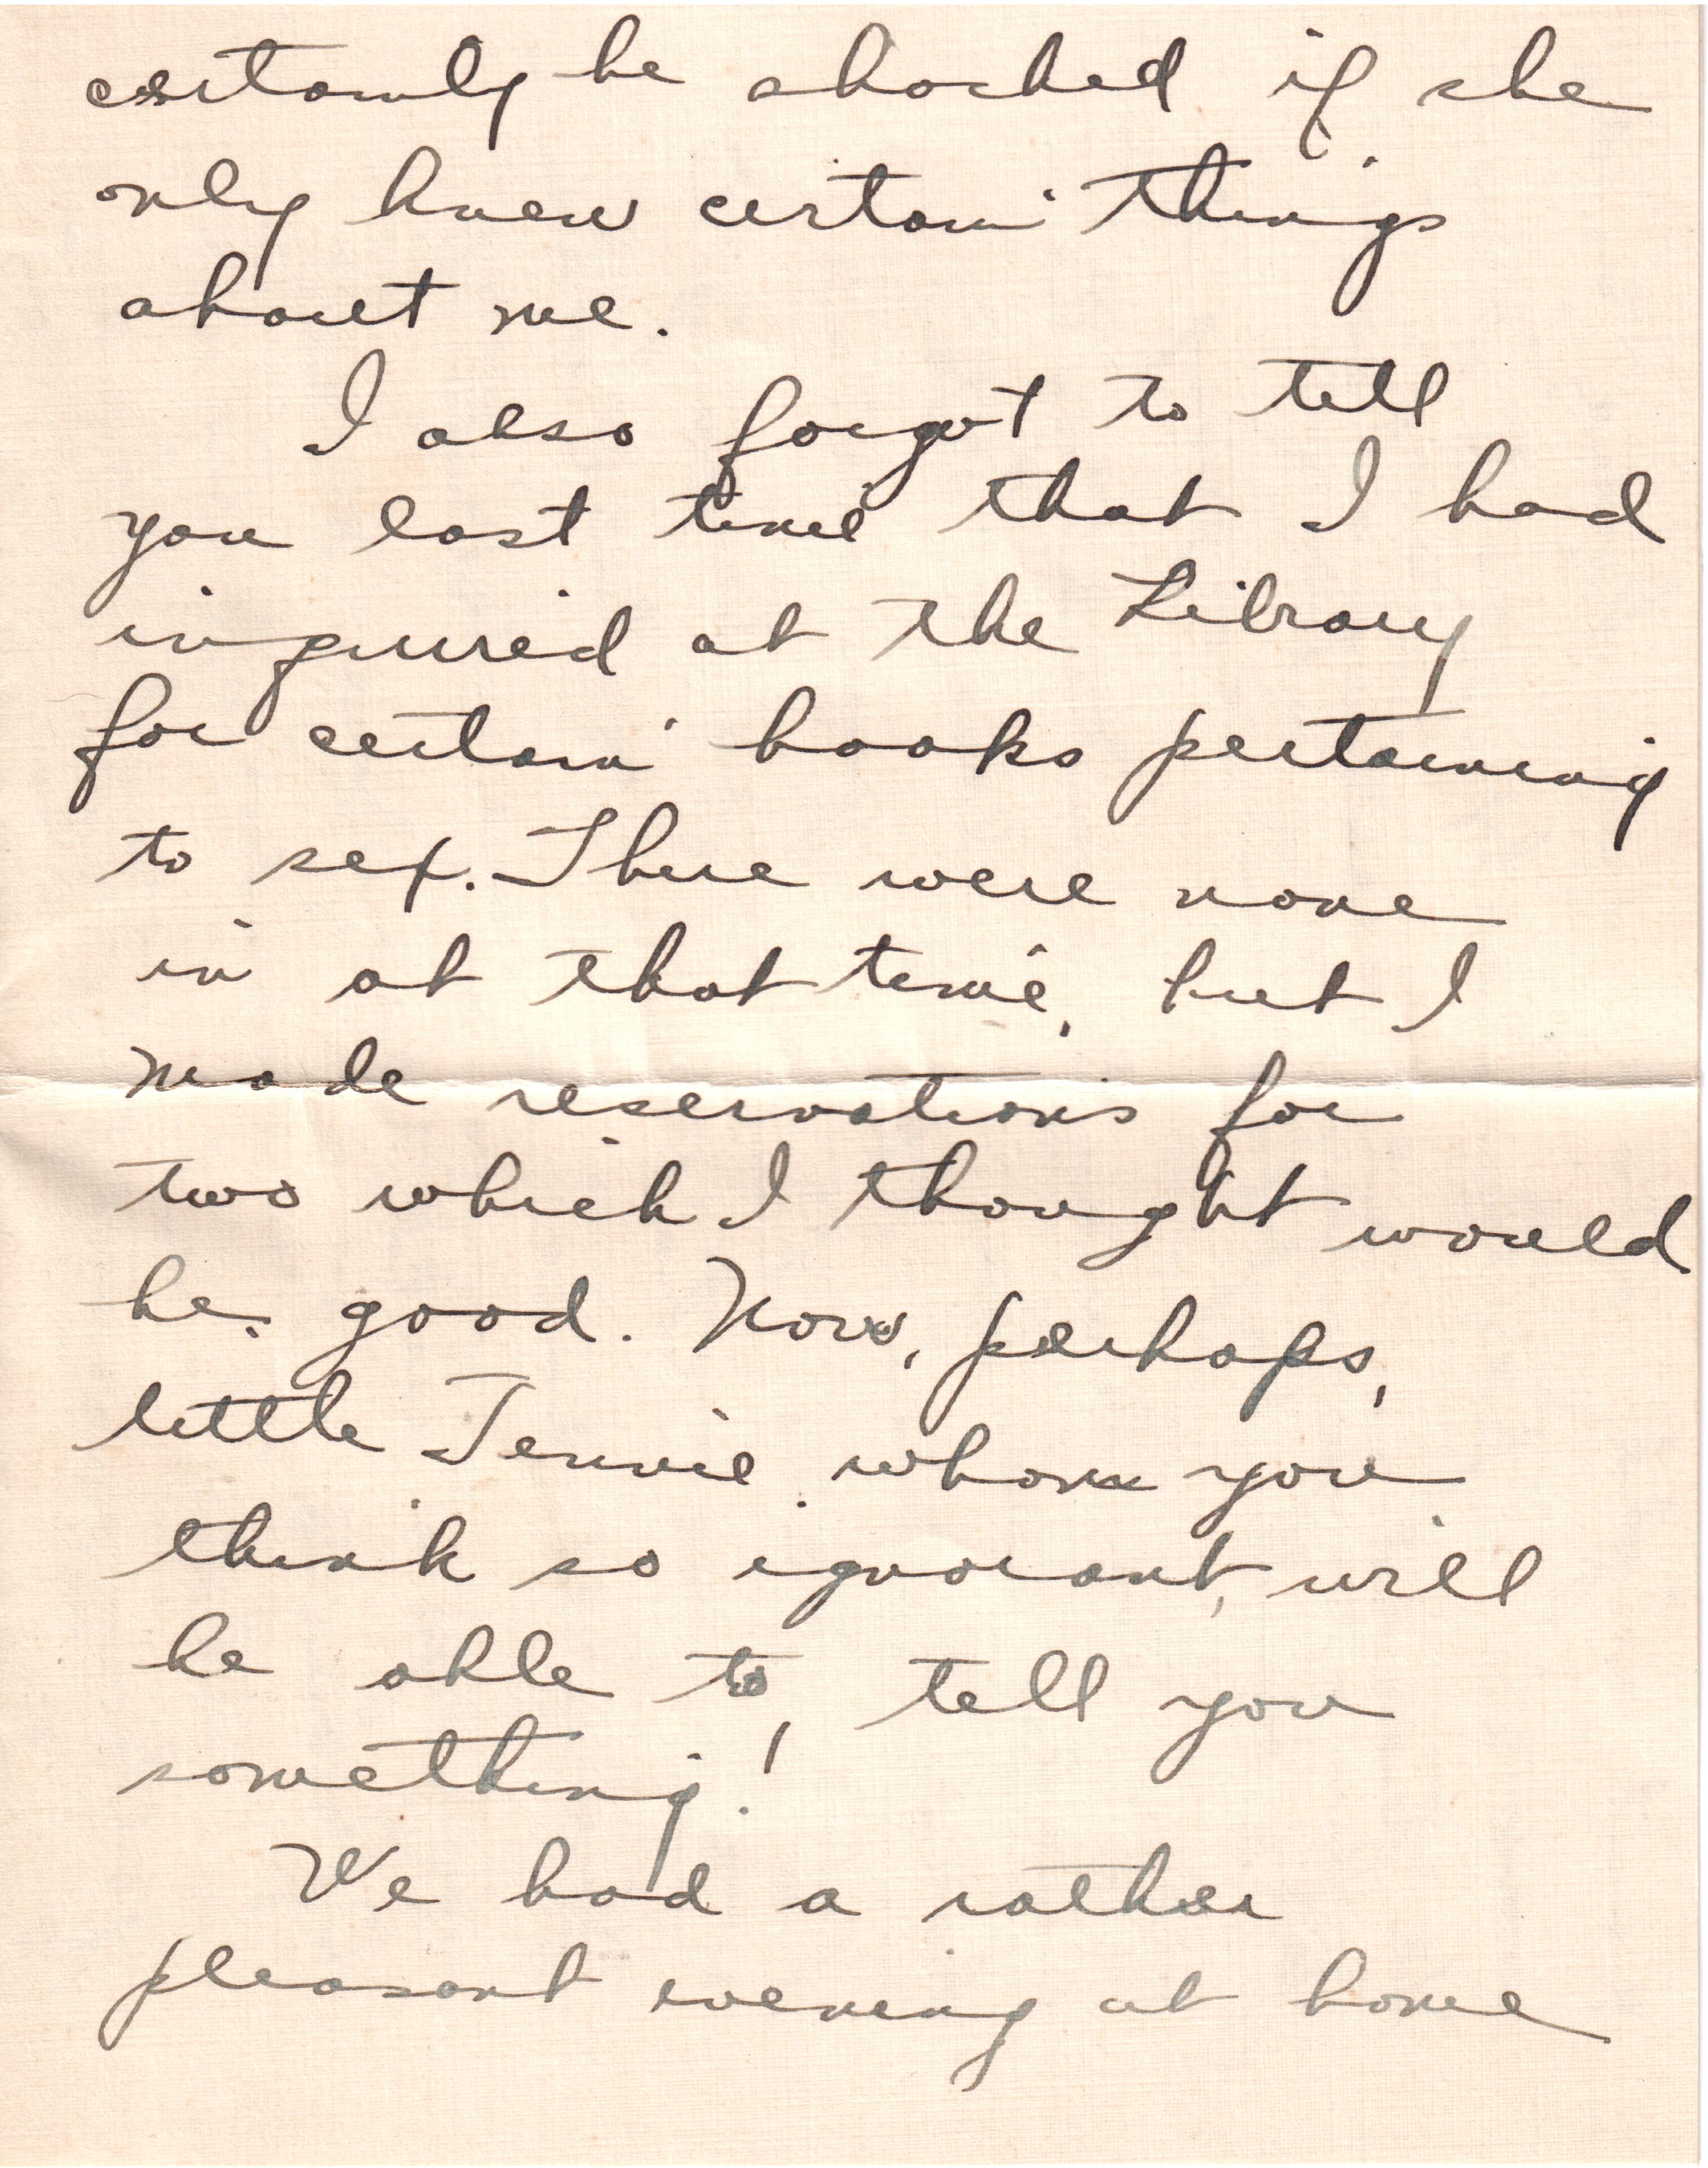 certainly be shocked if she
only knew certain things
about me.
I also forgot to tell
you last time that I had
inquired at the Library
for certain books pertaining
to sex. There were none
in at that time, but I
made reservations for
two which I thought would
be good. Now, perhaps,
little Jennie, whom you
think so ignorant, will
be able to, tell you
something!
We had a rather
pleasant evening at home